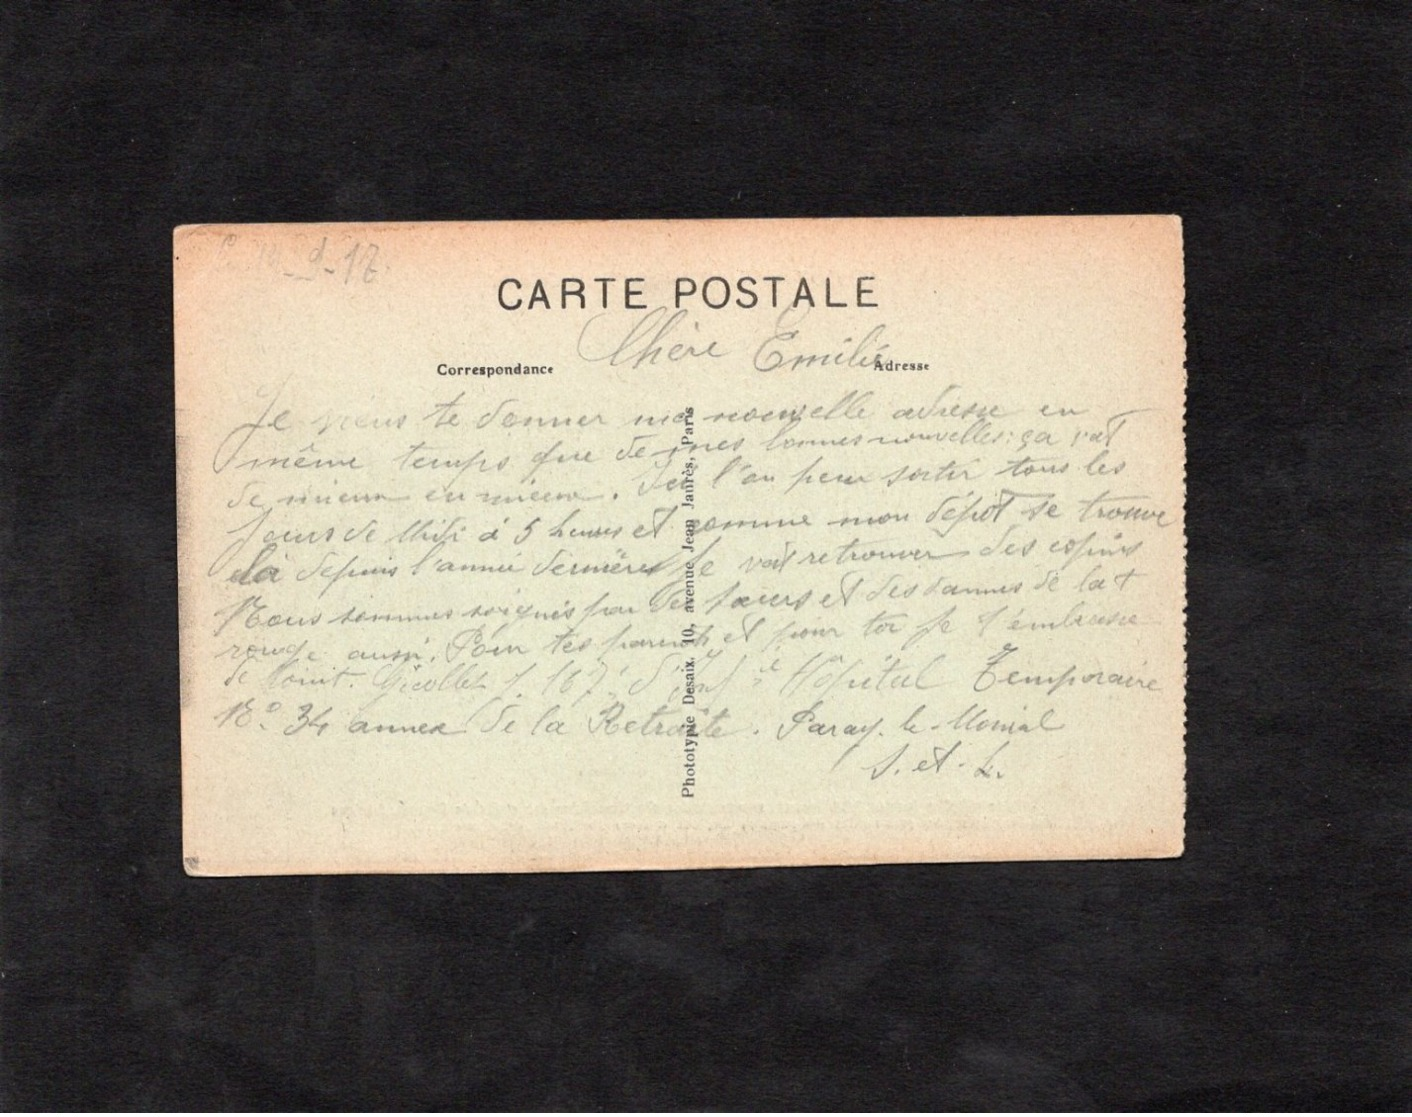 -9-17
CARTE POSTALE
Chère Emilie
Correspondance
Adresse
Je viens te donner ma nouvelle adresse en
même temps que de mes bonnes nouvelles: ça vat
de mieux en mieux. Ici l'on peu sortir tous les
jours de Midi à 5 heures et comme mon dépot se trouve
là depuis l'année dernière je vait retrouver des copins
Nous sommes soignés par des sœurs et des dammes de la +
rouge aussi. Pour tes parents et pour toi je t'embrasse
de loint. 167 d'Inf Hôpital Temporaire
No 34 annex de la Retraite. Paray-le-Monial
S. et L.
Phototypie Desaix, 10, avenue Jean Jaurès, Paris